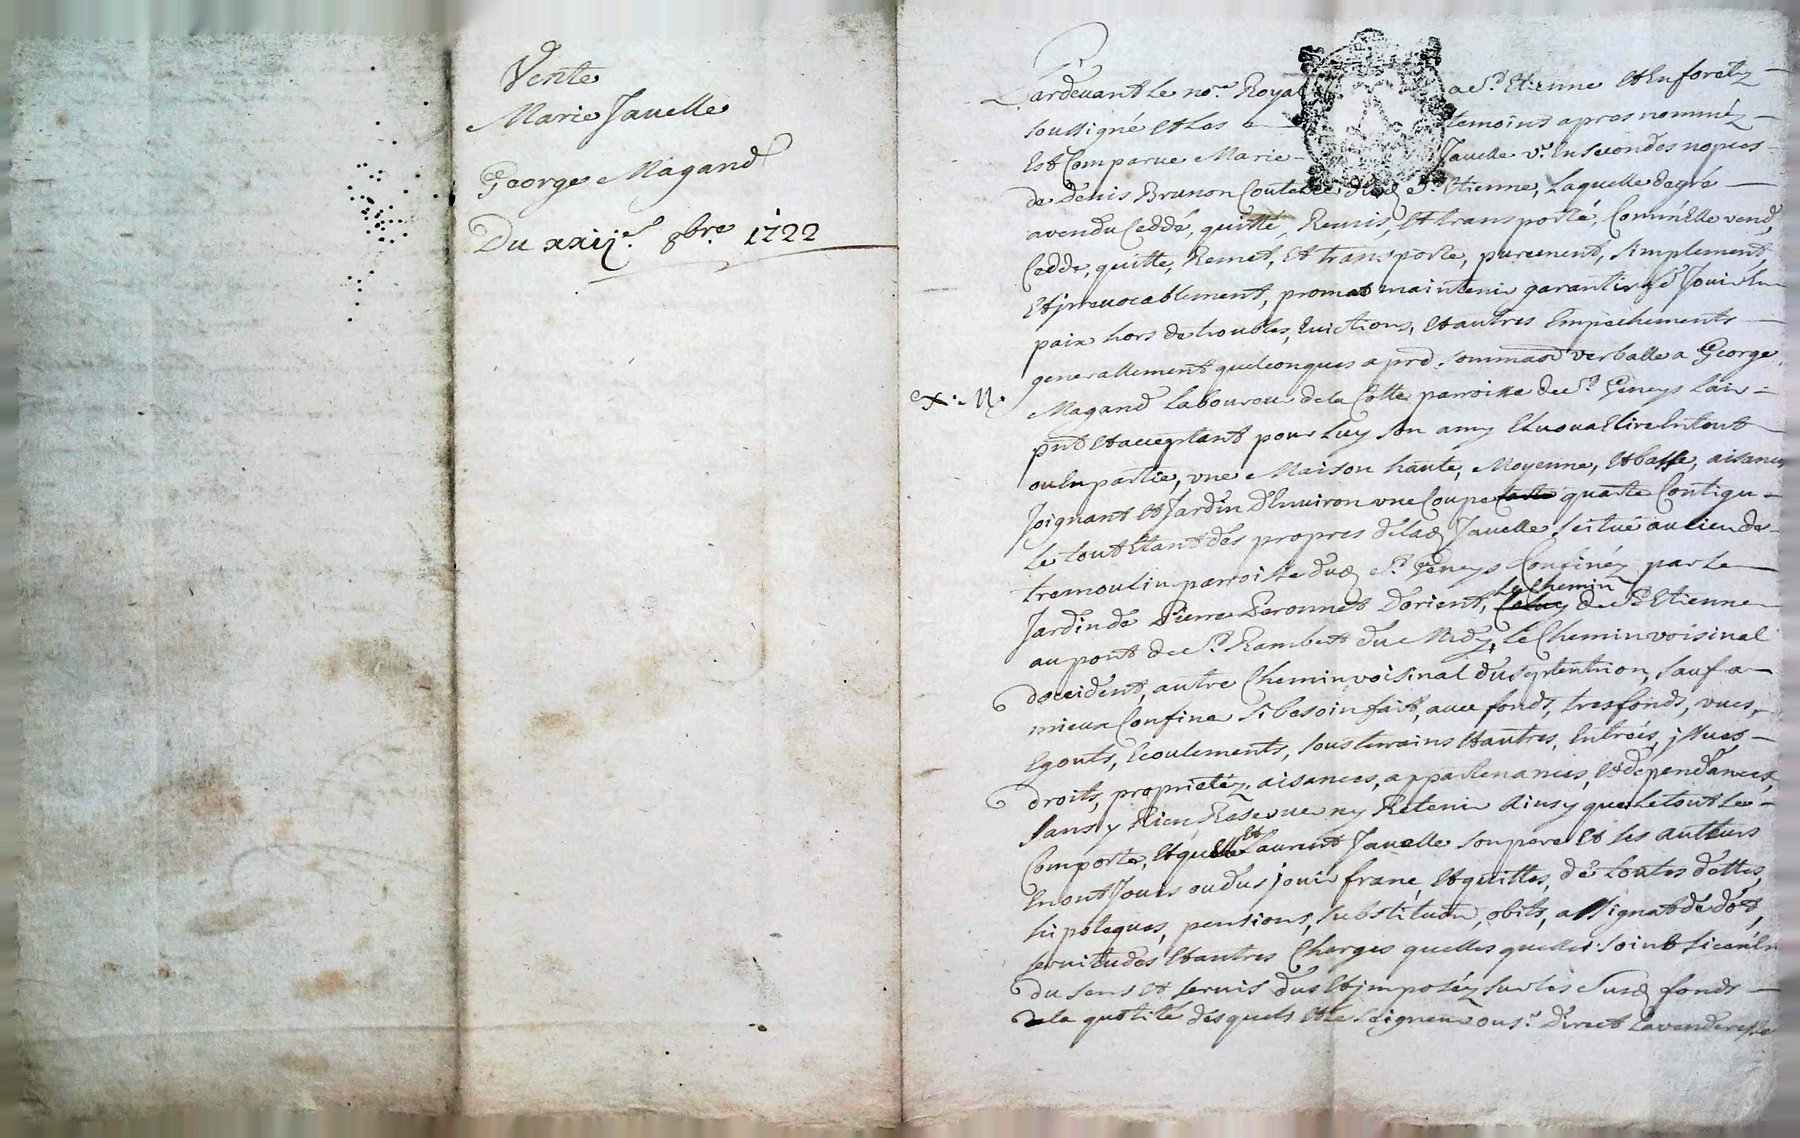 Vente
Marie Javelle
George Magand
Du xxiij.e 8bre 1722
Pardevant Le nore Royal a St Etienne Et En foretz
soussigné Et Les temoins apres nomméz
Est Comparue Marie Javelle ve En secondes nopces
de Denis Brunon Coutelier dud St Etienne, Laquelle de gré
a vendu Ceddé, quitté, Remis, Et transporté, Comm'Elle vend,
Cedde, quitte, Remet, Et transporte, purement, simplement,
Et jrrevocablement, promet maintenir garantir Jouir En
paix hors de troubles, Evictions, Et autres Empechements
generallement quelconques a prd. sommaon verballe a George
ex. M.
Magand Laboureur de la Cotte parroisse de St Geneys Lair
pnt Et acceptant pour Luy son amy Elu ou a Elire En tout
ou En partie, une Maison haute, Moyenne, Et basse, aisances
Joignant Et Jardin d'Environ une Coupe quarte Contigu
Le tout Etant des propres de lad Javelle, scitué au lieu de
tremoulin parroisse dud St Geneys Confinéz par Le
Jardin de Pierre Peronnet d'orient, Le Chemin de St Etienne
au pont de St Rambert du Midy, Le Chemin voisinal
doccident, autre Chemin voisinal du septentrion, sauf a
mieux Confiner si besoin fait, avec fonds, tresfonds, vues,
Egouts, Ecoulements, sousterrains Et autres, Entrées, jssues
droits, proprietéz, aisances, appartenances, Et dependances,
sans y Rien Reserver ny Retenir Ainsy que Le tout Se
Comporte, Et qu'Elle Et Laurent Javelle son pere Et ses autheurs
En ont Jouis ou dus jouir franc, Et quittes, de toutes dettes,
hipoteques, pensions, substituon, obits, assignat de dot,
servitudes Et autres Charges quelles quelles soint si ce n'En
du sens Et servis dus Et jmposéz sur les Susd fonds
de la quotité desquels Et Le seigneur ou sr Direct La venderesse